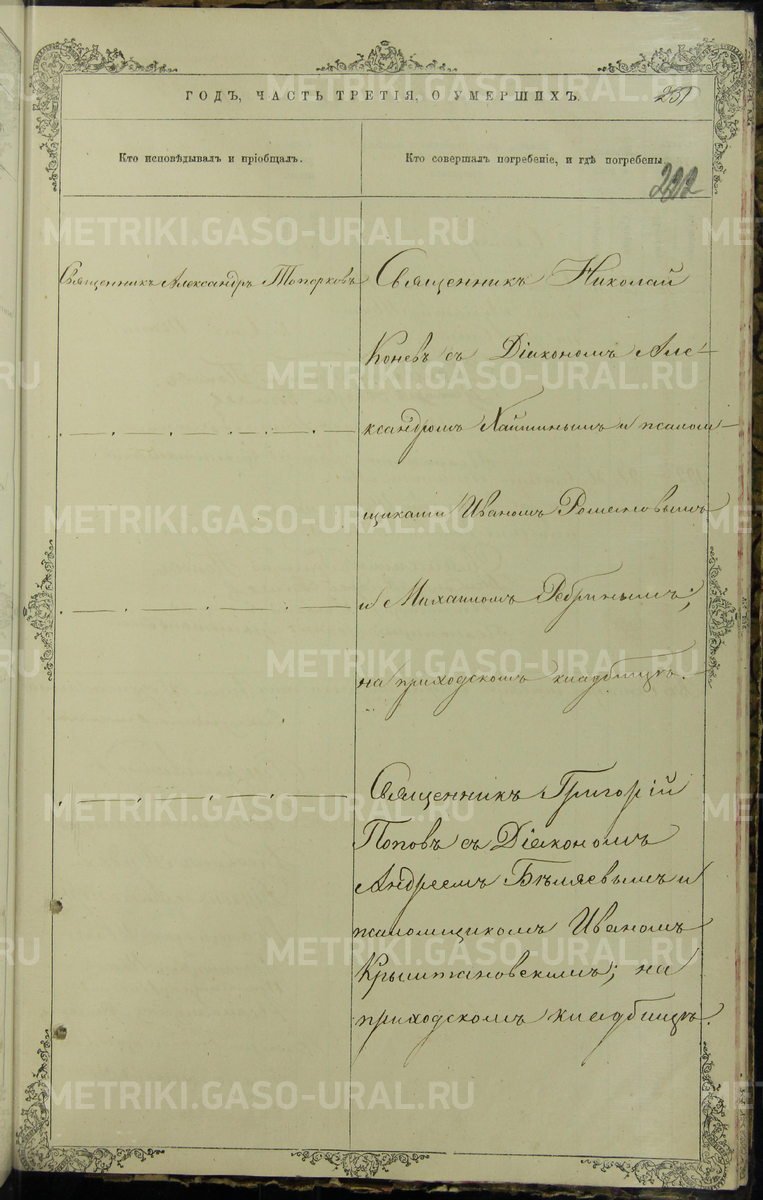 ГОДЪ, ЧАСТЬ ТРЕТІЯ, О УМЕРШИХЪ.
Кто исповѣдывалъ и пріобщалъ.
Кто совершалъ погребеніе, и гдѣ погребены
222
METRIKI.GASO-URAL.RU
Священникъ Александръ Топорковъ
Священникъ Николай
Коневъ съ Діакономъ Але-
ксандромъ и псалом-
щиками Иваномъ Романовымъ
и Михаиломъ Ребринымъ;
на приходскомъ кладбищѣ.
Священникъ Григорій
Поповъ съ Діакономъ
Андреемъ Бѣляевымъ и
псаломщикомъ Иваномъ
Крыштановскимъ; на
приходскомъ кладбищѣ.